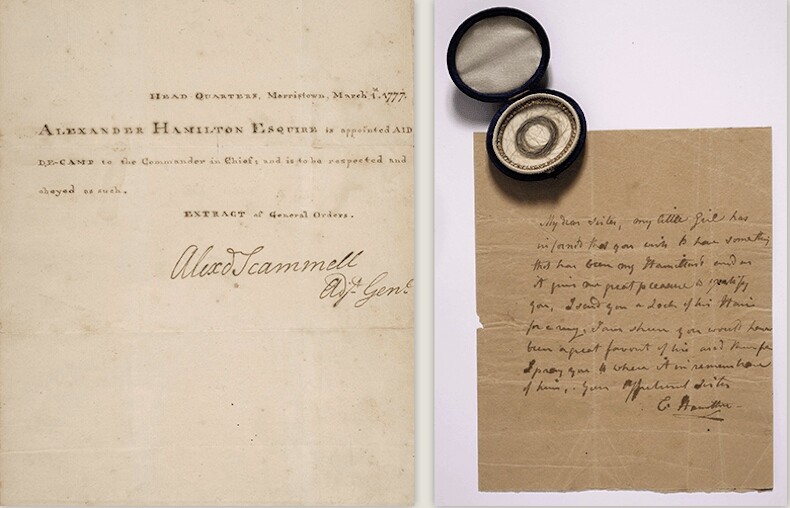 HEAD QUARTERS, Morristown, March 1st 1777.
ALEXANDER HAMILTON ESQUIRE is appointed AID
DE-CAMP to the Commander in Chief; and is to be respected and
obeyed as such.
EXTRACT of General Orders.
Alexd Scammell
Adjt Genl
My dear sister, my little Girl has
informd that you wish to have something
that has been my Hamilton's and as
it gives me great pleasure to gratify
you, I send you a Lock of his Hair
for a ring. I am shure you would have
been a great favourit of his and
I pray you to where it in remembrance
of him, Your Sister
E Hamilton